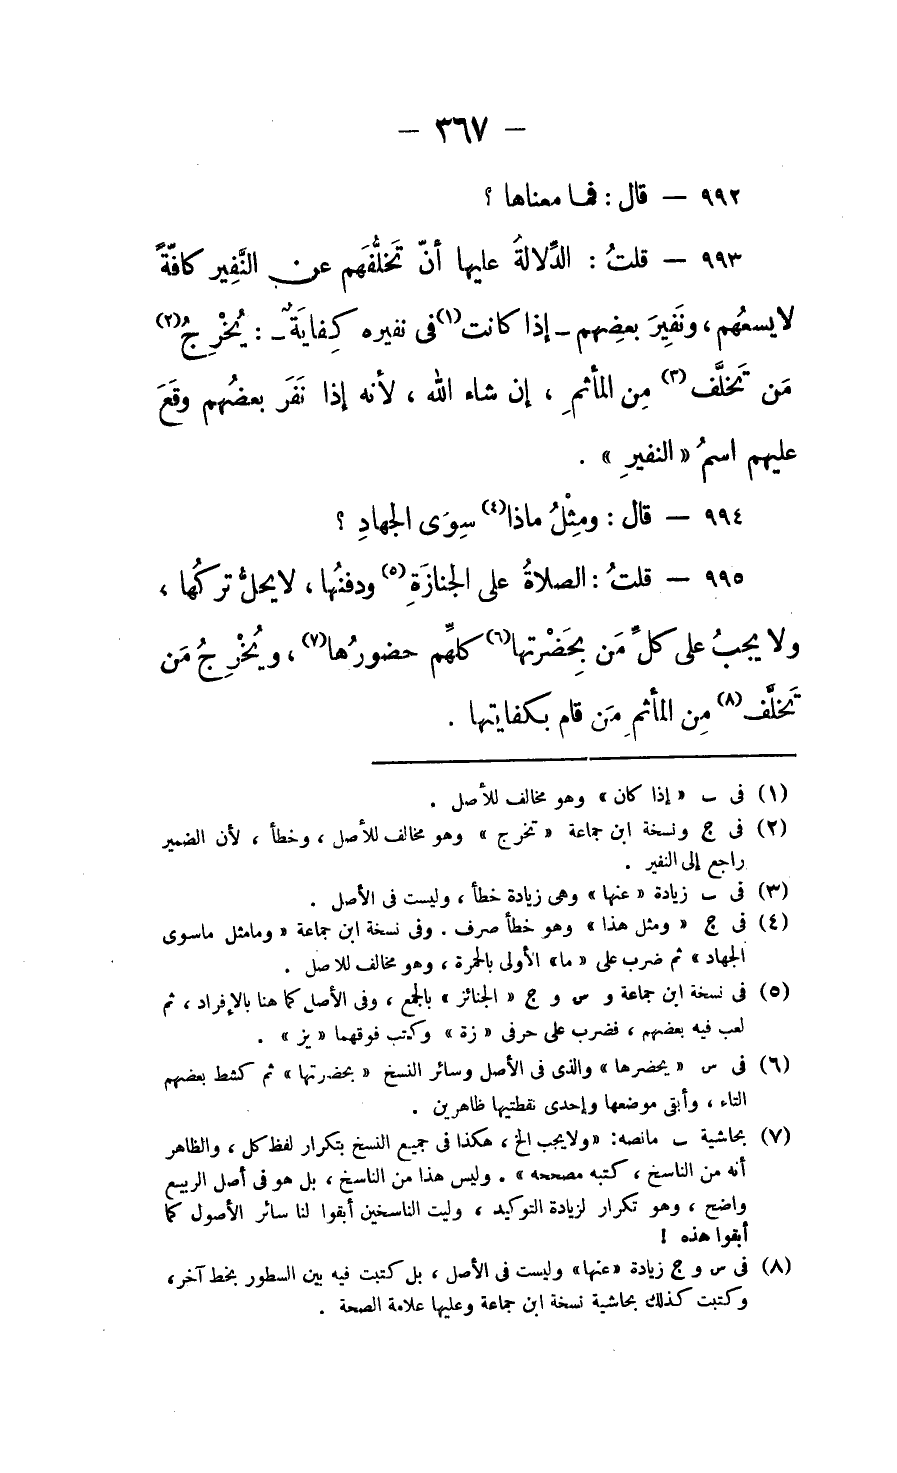 — ٣٦٧ —
٩٩٢ — قال : فما معناها ؟
٩٩٣ — قلتُ : الدِّلالةُ عليها أنّ تَخَلُّفَهم عن النَّفِير كافّةً
لا يسعُهم ، ونَفِيرَ بعضِهم – إذا كانت(١) فى نفيره كِفايَةٌ – : يُخْرِجُ(٢)
مَن تَخلَّف(٣) مِن المأثمِ ، إن شاء الله ، لأنه إذا نَفَرَ بعضُهم وقَعَ
عليهم اسمُ « النفيرِ » .
٩٩٤ — قال : ومِثْلُ ماذا(٤) سِوَى الجهادِ ؟
٩٩٥ — قلتُ : الصلاةُ على الجنازَةِ(٥) ودفنُها ، لا يحلُّ تركُها ،
ولا يجبُ على كلِّ مَن بِحَضْرتِها(٦) كلِّهم حضورُها(٧) ، ويُخْرِجُ مَن
تَخلَّف(٨) مِن المأثمِ مَن قام بكفايتها .
(١) فى ب « إذا كان » وهو مخالف للأصل .
(٢) فى ج ونسخة ابن جماعة « تخرج » وهو مخالف للأصل ، وخطأ ، لأن الضمير
راجع إلى النفير .
(٣) فى ب زيادة « عنها » وهى زيادة خطأ ، وليست فى الأصل .
(٤) فى ج « ومثل هذا » وهو خطأ صرف . وفى نسخة ابن جماعة « ومامثل ماسوى
الجهاد » ثم ضرب على « ما » الأولى بالحمرة ، وهو مخالف للاصل .
(٥) فى نسخة ابن جماعة و س و ج « الجنائز » بالجمع ، وفى الأصل كما هنا بالإفراد ، ثم
لعب فيه بعضهم ، فضرب على حرفى « زة » وكتب فوقهما « يز » .
(٦) فى س « يحضرها » والذى فى الأصل وسائر النسخ « بحضرتها » ثم كشط بعضهم
التاء ، وأبقى موضعها وإحدى نقطتيها ظاهرين .
(٧) بحاشية ب مانصه : « ولايجب الخ ، هكذا فى جميع النسخ بتكرار لفظ كل ، والظاهر
أنه من الناسخ ، كتبه مصححه » . وليس هذا من الناسخ ، بل هو فى أصل الربيع
واضح ، وهو تكرار لزيادة التوكيد ، وليت الناسخين أبقوا لنا سائر الأصول كما
أبقوا هذه !
(٨) فى س و ج زيادة « عنها » وليست فى الأصل ، بل كتبت فيه بين السطور بخط آخر ،
وكتبت كذلك بحاشية نسخة ابن جماعة وعليها علامة الصحة .